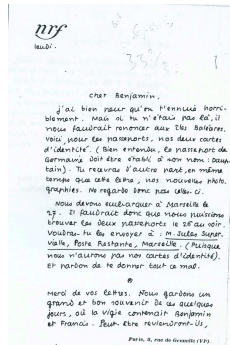 nrf
Jeudi.
Cher Benjamin,
J'ai bien peur qu'on t'ennuie horri-
blement. Mais si tu n'étais pas là, il
nous faudrait renoncer aux Iles Baléares.
Voici, pour les passeports, nos deux cartes
d'identité. (Bien entendu, le passeport de
Germaine doit être établi à son nom :
tain). Tu recevras d'autre part, en même
temps que cette lettre, nos nouvelles photo-
graphies. Ne regarde donc pas celles-ci.
Nous devons embarquer à Marseille le
27. Il faudrait donc que nous puissions
trouver les deux passeports le 26 au soir.
Voudras-tu les envoyer à : M. Jules Super-
vielle, Poste Restante, Marseille. (Puisque
nous n'aurons pas nos cartes d'identité).
Et pardon de te donner tout ce mal.
Merci de vos lettres. Nous gardons un
grand et bon souvenir de ces quelques
jours, où la Vigie contenait Benjamin
et Francis. Peut-être reviendront-ils,
Paris, 3, rue de Grenelle (VIe).